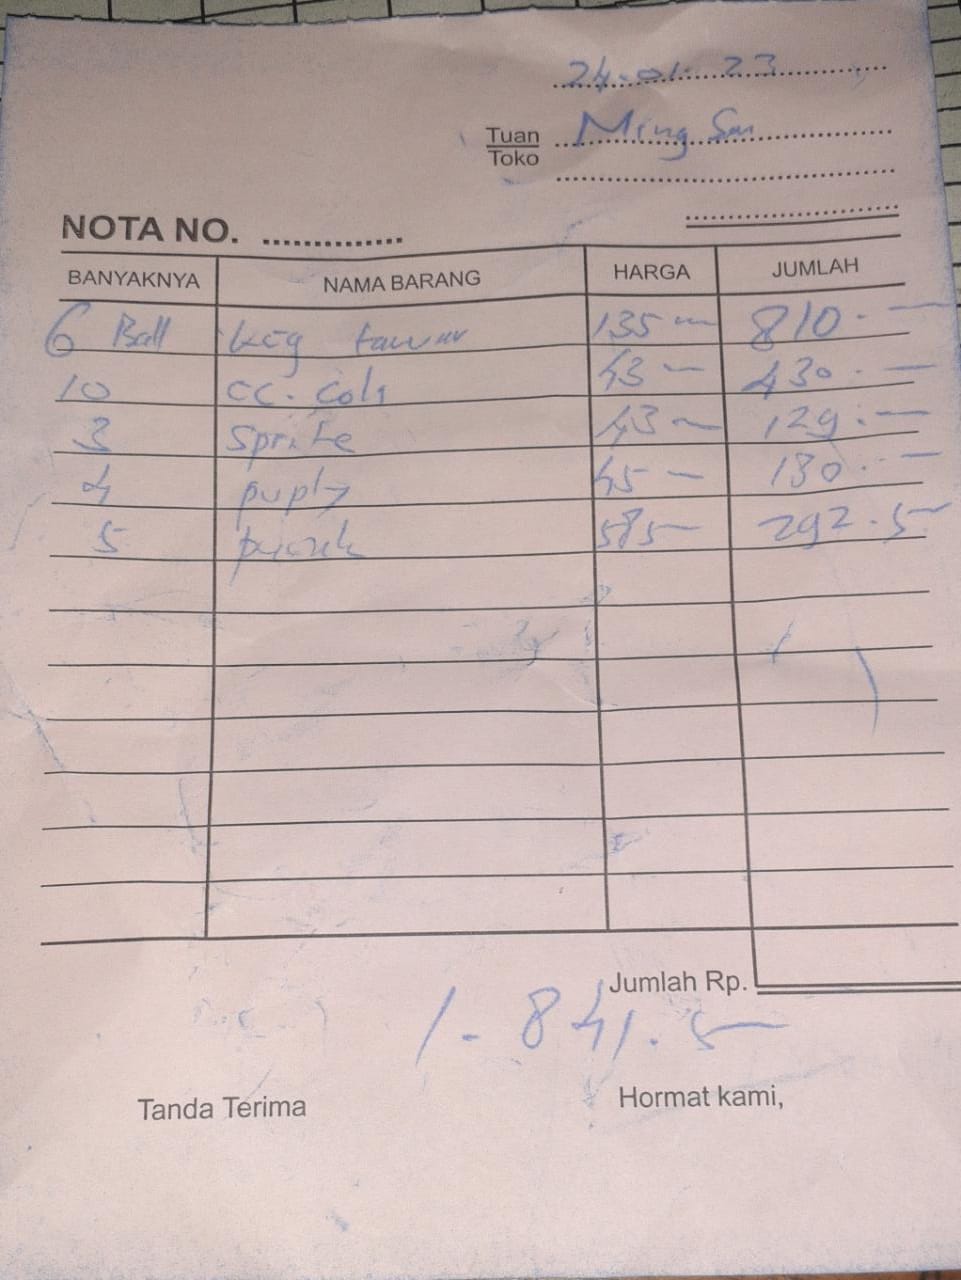 24-01-23
Tuan Ming San
Toko
NOTA NO. ..............
BANYAKNYA NAMA BARANG HARGA JUMLAH
6 Ball kcg tawar 135 — 810.—
10 cc. cola 43 — 430.—
3 Sprite 43 — 129.—
4 45 — 180.—
5 585— 292.5—
Jumlah Rp.
1.841.5—
Tanda Terima Hormat kami,